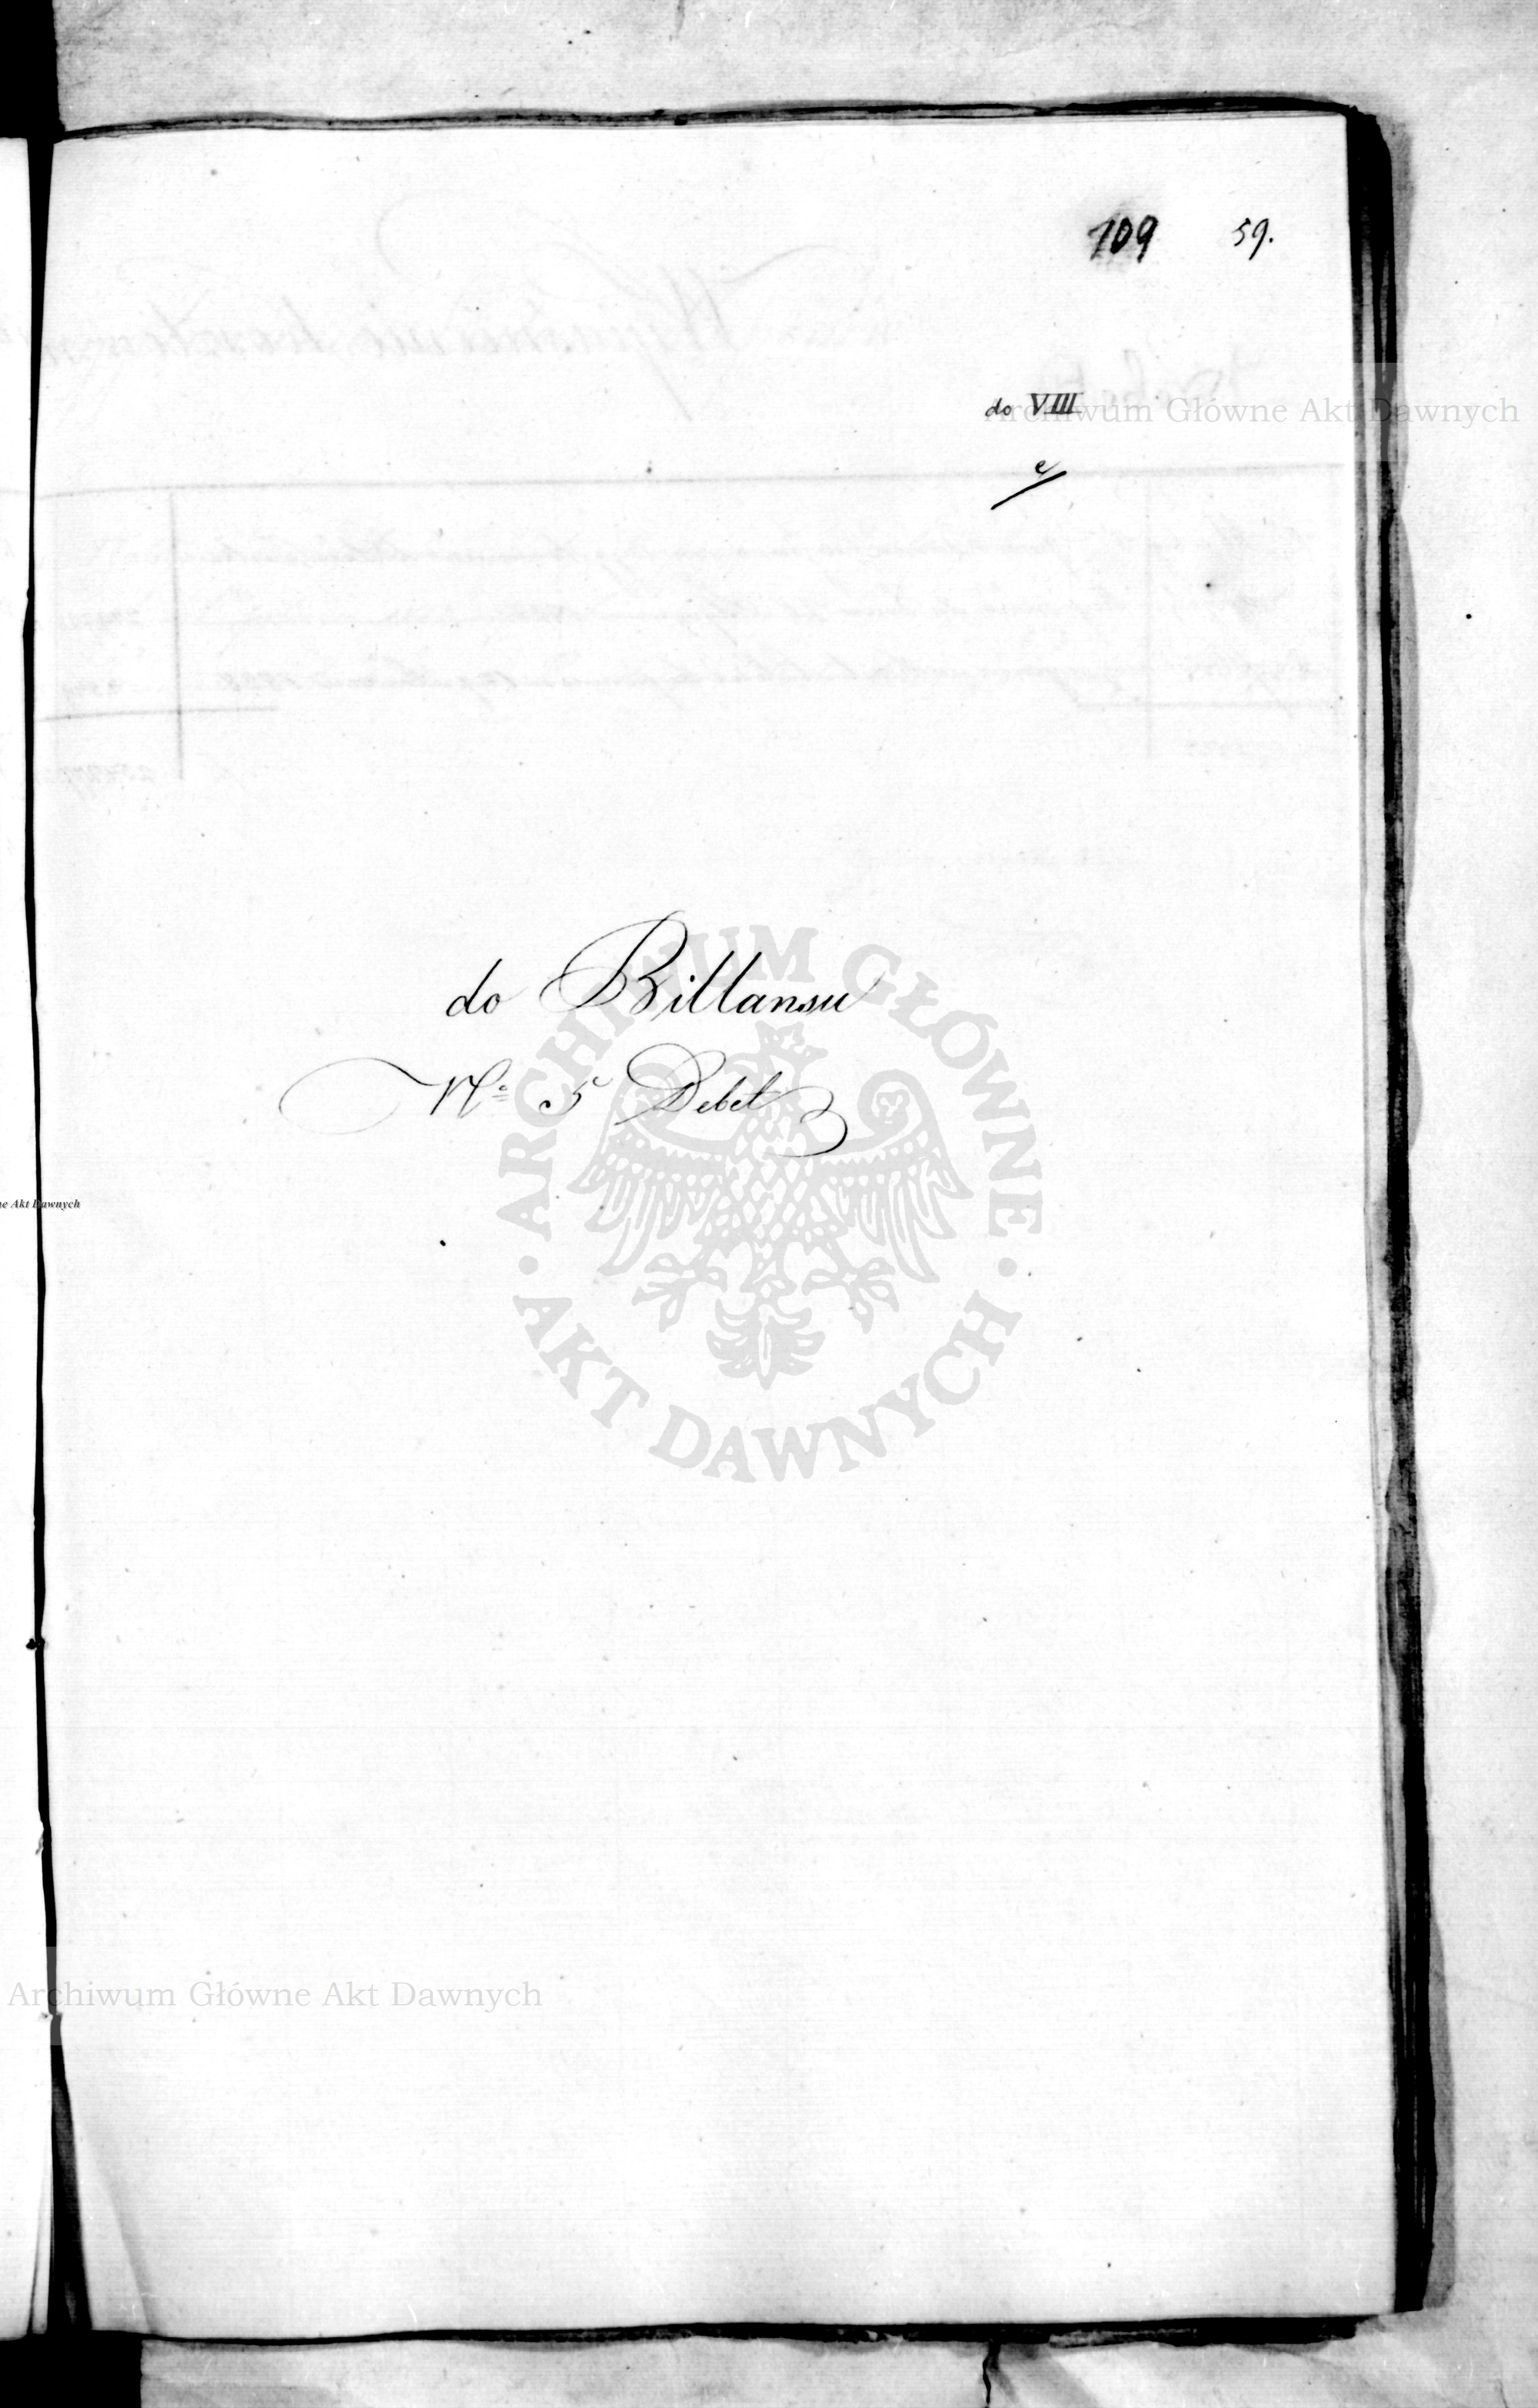 109 59.
do VIII
e/
do Billansu
No 5 Debet
Archiwum Główne Akt Dawnych
ARCHIWUM GŁÓWNE AKT DAWNYCH
ne Akt Dawnych
Archiwum Główne Akt Dawnych